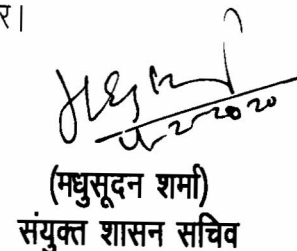 र।
2-2020
(मधुसूदन शर्मा)
संयुक्त शासन सचिव